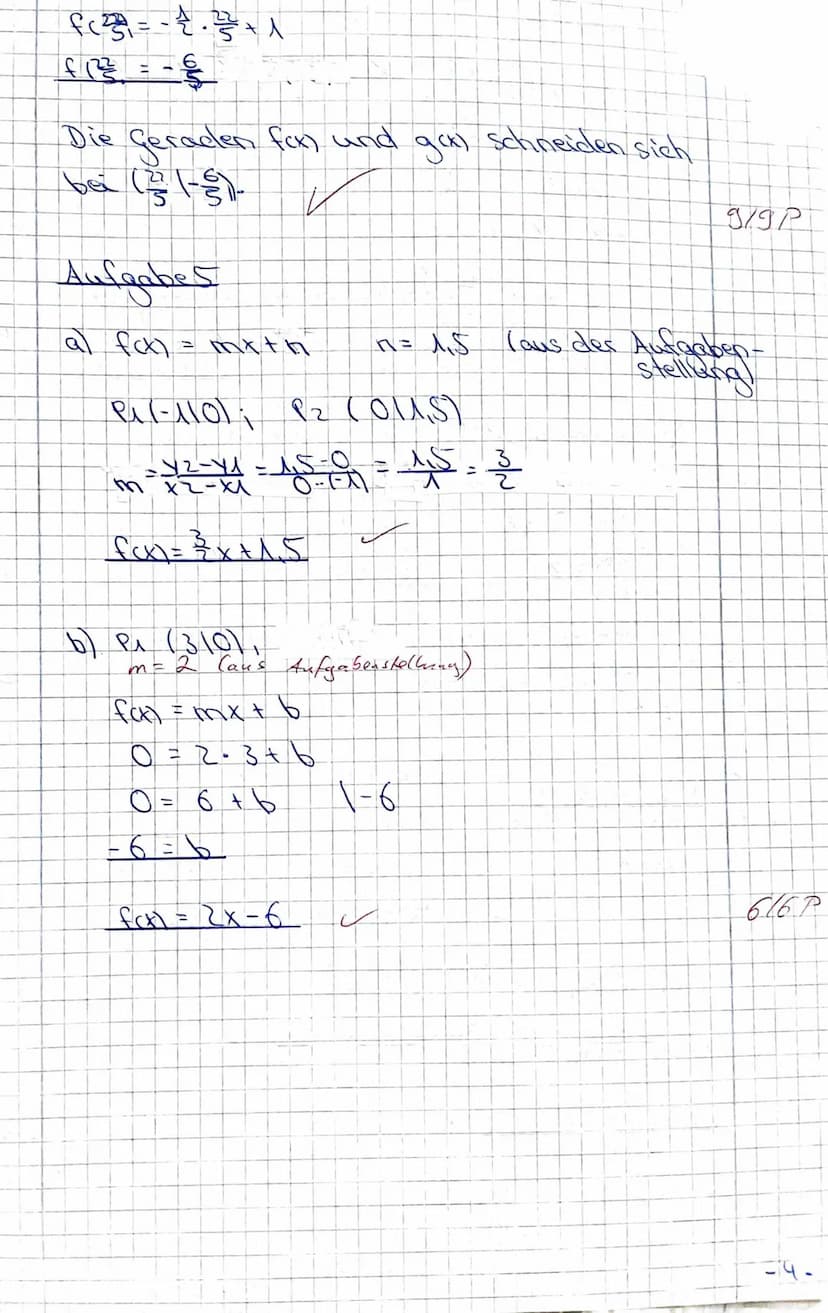 f(22/5) = -1/2 · 22/5 + 1
f(22/5 = -6/5
Die Geraden f(x) und g(x) schneiden sich
bei (22/5 | -6/5).
9/9 P
Aufgabe 5
a) f(x) = mx + n n = 1,5 (aus der Aufgaben-
stellung)
P1(-1|0); P2 (0|1,5)
m = y2-y1/x2-x1 = 1,5-0/0-(-1) = 1,5/1 = 3/2
f(x) = 3/2 x + 1,5
b) P1 (3|0),
m = 2 (aus Aufgabenstellung)
f(x) = mx + b
0 = 2 · 3 + b
0 = 6 + b | -6
-6 = b
f(x) = 2x - 6
6/6 P
- 4 -